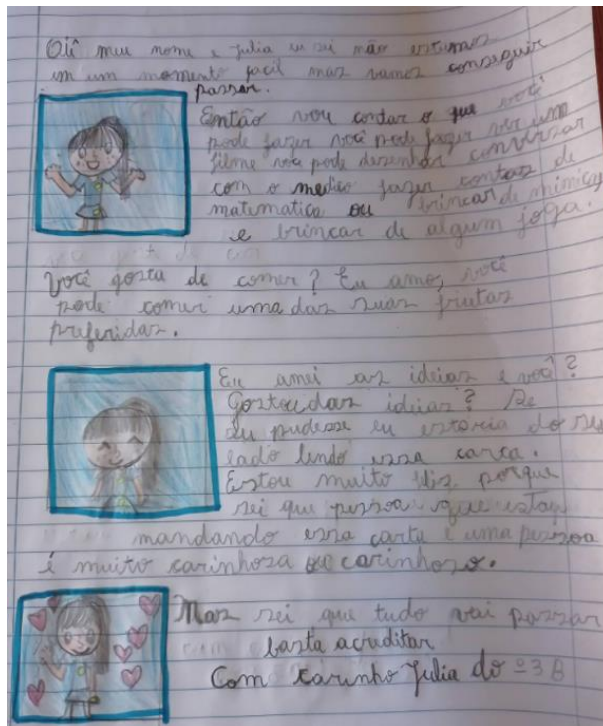 Oiê meu nome e Julia eu sei não estamos
em um momento facil mas vamos conseguir
passar.
Então vou contar o que você
pode fazer você pode fazer ver um
filme você pode desenhar conversar
com o medico fazer contas de
matematica ou brincar de mimica
e brincar de algum joga.
Você gosta de comer? Eu amo, você
pode comer uma das suas frutas
preferidas.
Eu amei as ideias e você?
Gostou das ideias? Se
eu pudesse eu estaria do seu
lado lendo essa carta.
Estou muito feliz porque
sei que pessoa que
mandando essa carta e uma pessoa
é muito carinhosa ou carinhoso.
Mas sei que tudo vai passar
basta acreditar
Com carinho Julia do º3 B